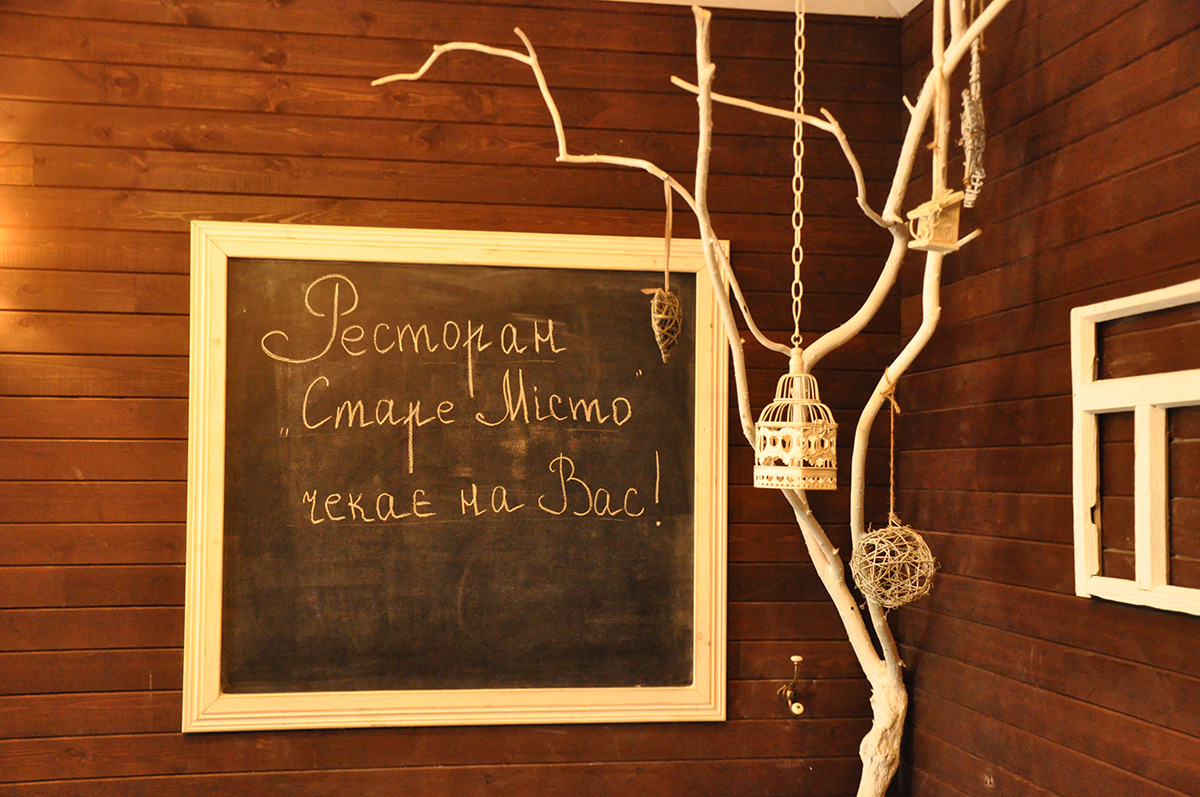 Ресторан
„Старе Місто"
чекає на Вас!